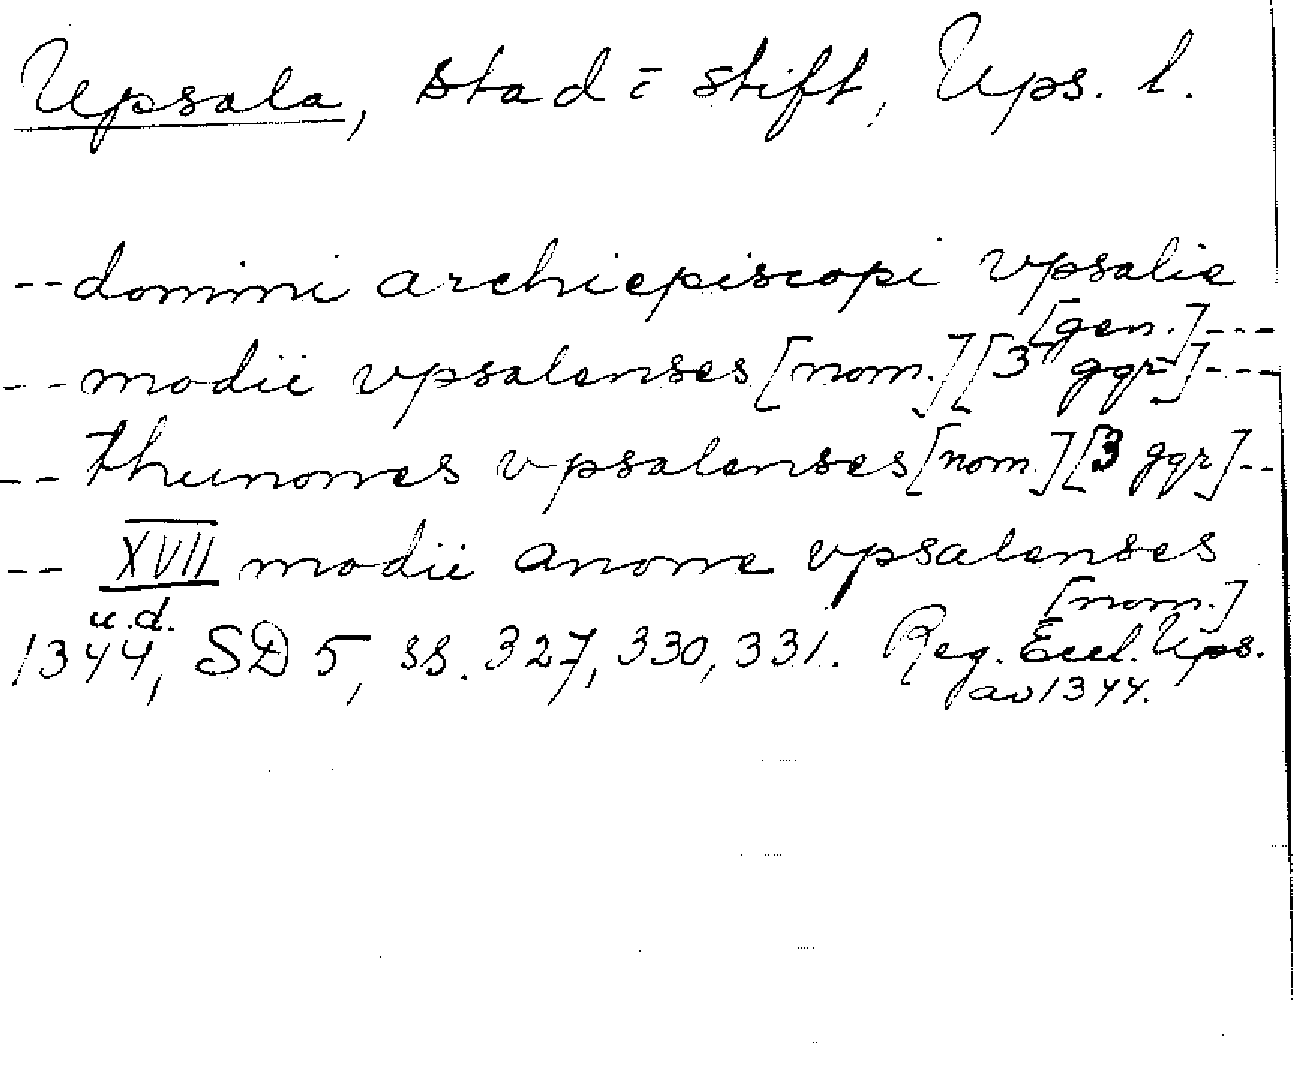 Upsala, stad = stift, Ups. l.
-- domini archiepiscopi vpsalie
[gen.] ---
-- modii vpsalenses [nom.] [3 ggr] ---
-- thunones vpsalenses [nom.] [3 ggr] --
-- XVII modii anone vpsalenses
[nom.]
u.d.
1344, SD 5, ss. 327, 330, 331. Reg. Eccl. Ups.
av 1344.